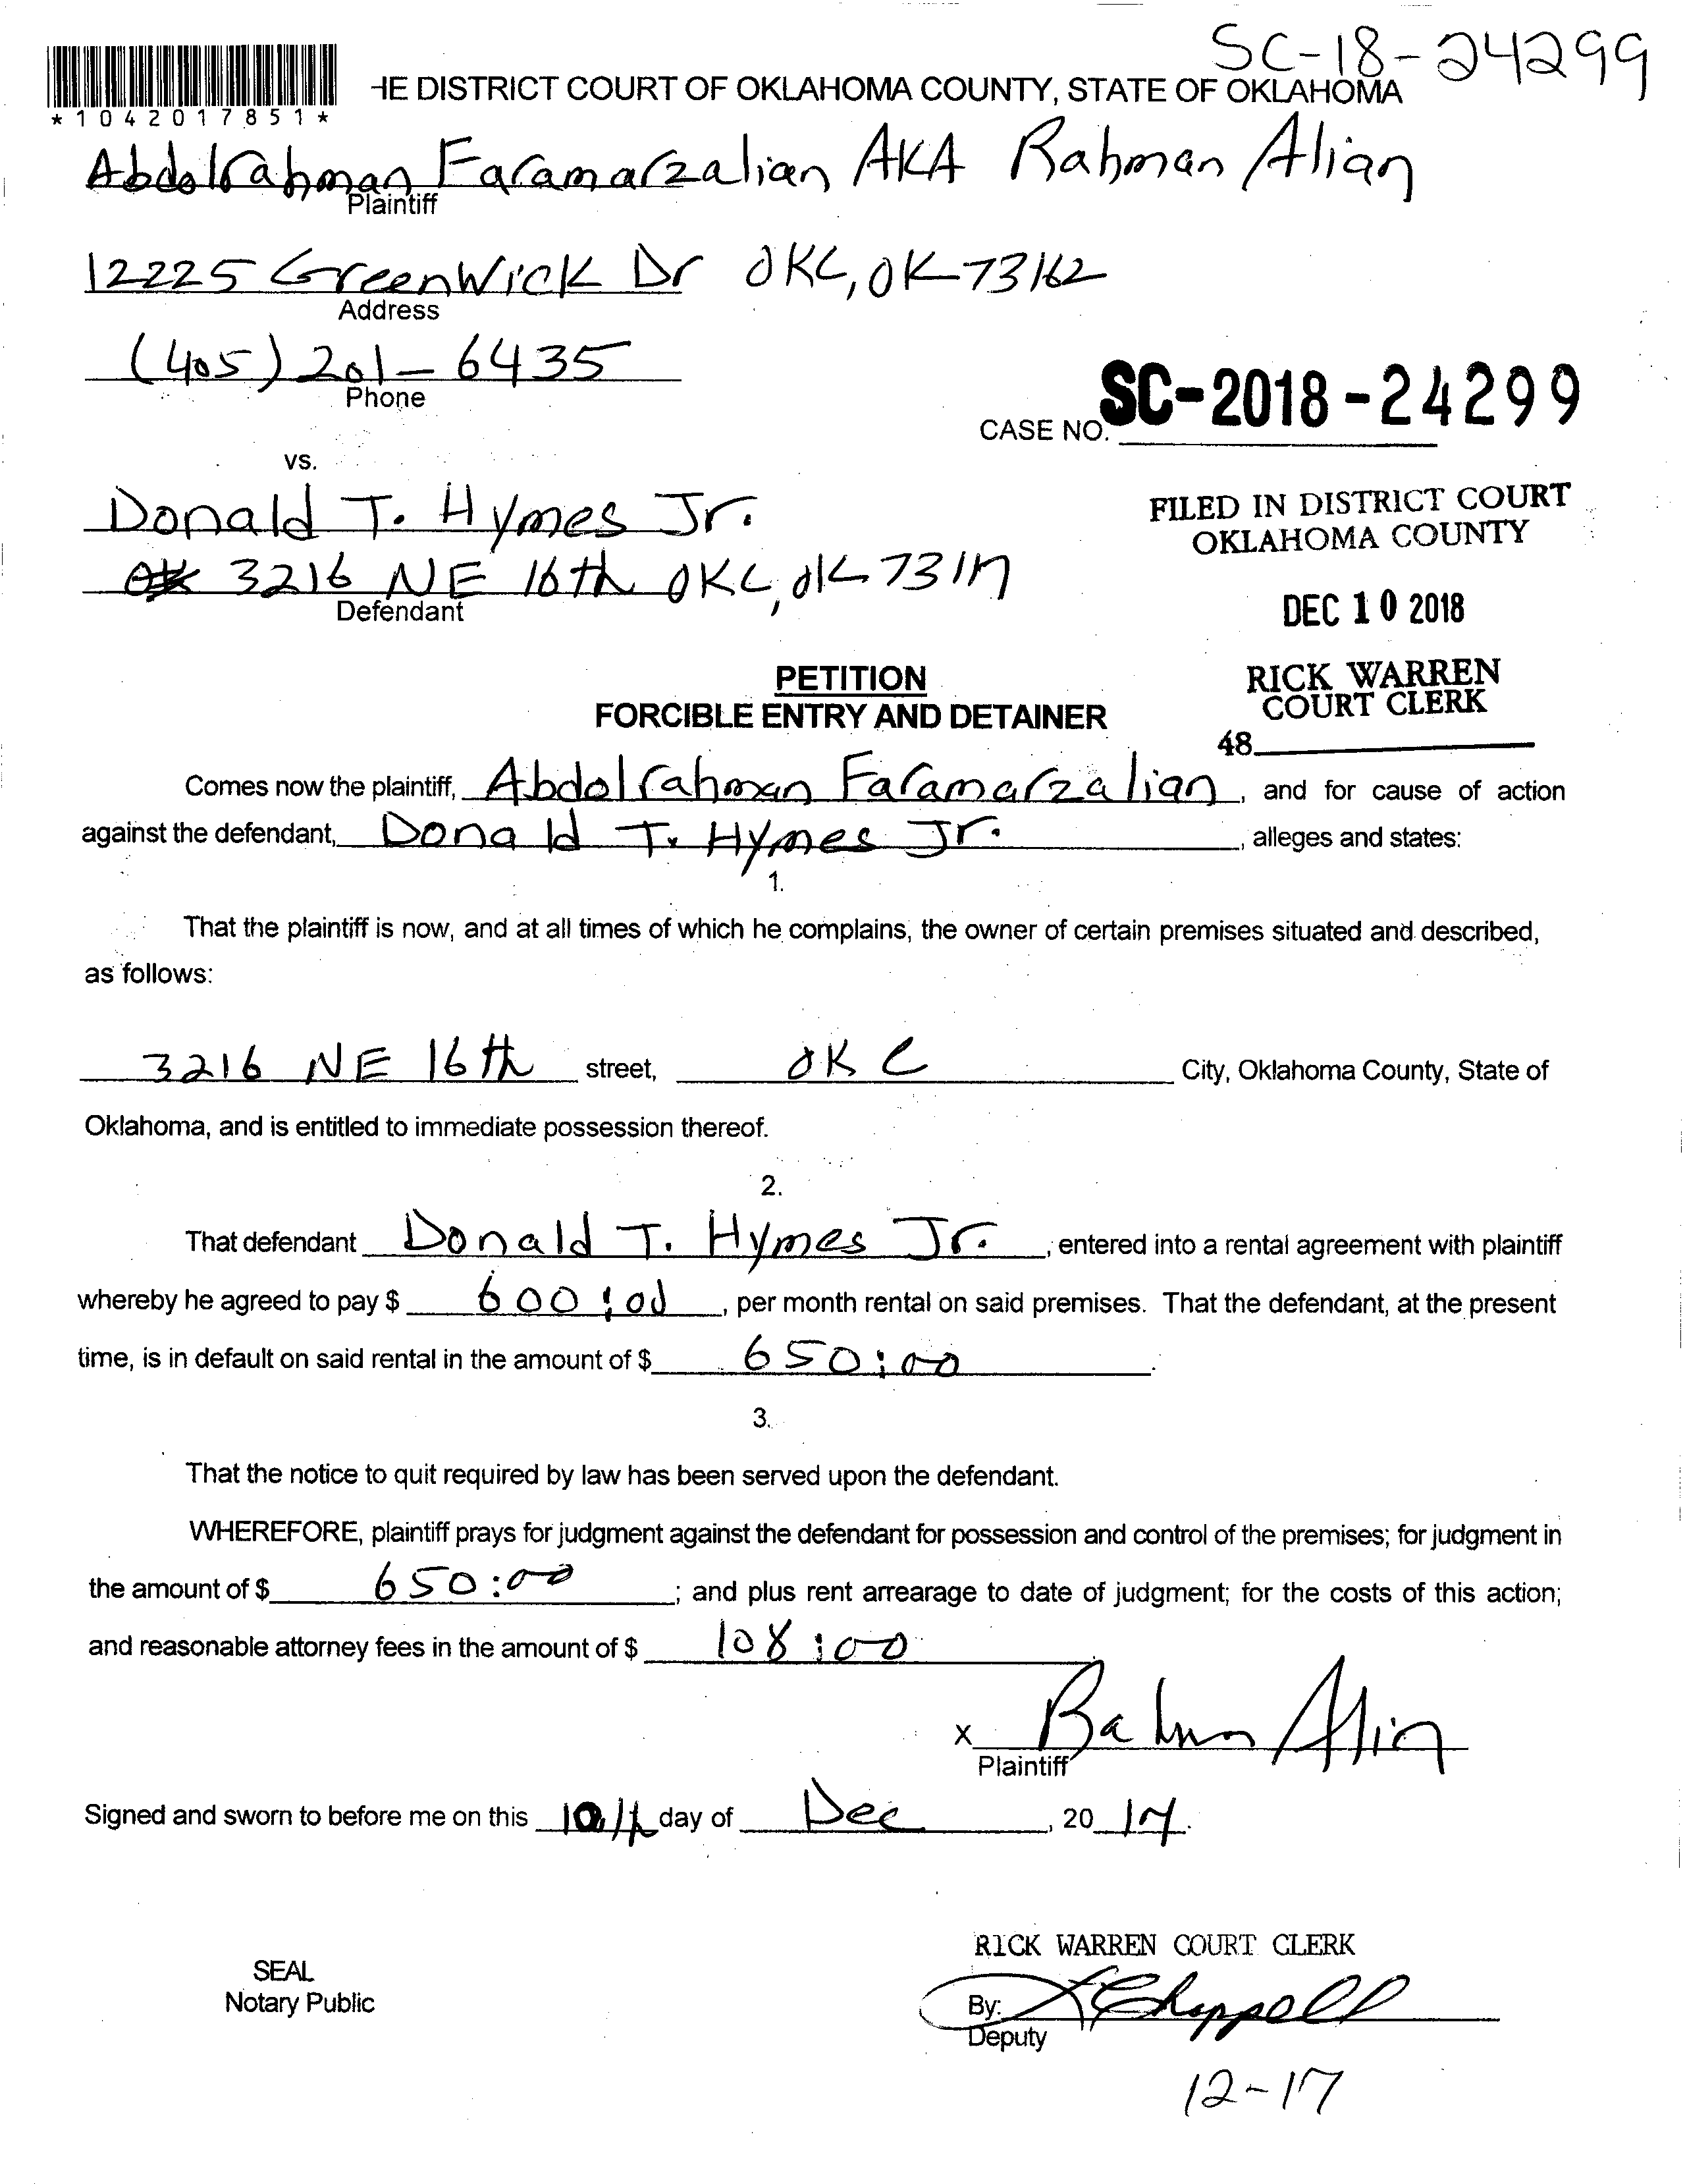 SC-18-24299
HE DISTRICT COURT OF OKLAHOMA COUNTY, STATE OF OKLAHOMA
*1042017851*
Abdolrahman Faramarzalian AKA Rahman Alian
Plaintiff
12225 GreenWick Dr OKC, OK 73162
Address
(405) 201-6435
Phone
CASE NO. SC-2018-24299
vs.
Donald T. Hymes Jr.
3216 NE 16th OKC, OK 73117
Defendant
FILED IN DISTRICT COURT
OKLAHOMA COUNTY
DEC 10 2018
RICK WARREN
COURT CLERK
48
PETITION
FORCIBLE ENTRY AND DETAINER
Comes now the plaintiff, Abdolrahman Faramarzalian, and for cause of action
against the defendant, Donald T. Hymes Jr., alleges and states:
1.
That the plaintiff is now, and at all times of which he complains, the owner of certain premises situated and described,
as follows:
3216 NE 16th street, OKC City, Oklahoma County, State of
Oklahoma, and is entitled to immediate possession thereof.
2.
That defendant Donald T. Hymes Jr., entered into a rental agreement with plaintiff
whereby he agreed to pay $ 600:00, per month rental on said premises. That the defendant, at the present
time, is in default on said rental in the amount of $ 650:00.
3.
That the notice to quit required by law has been served upon the defendant.
WHEREFORE, plaintiff prays for judgment against the defendant for possession and control of the premises; for judgment in
the amount of $ 650:00; and plus rent arrearage to date of judgment; for the costs of this action;
and reasonable attorney fees in the amount of $ 108:00
x Rahman Alian
Plaintiff
Signed and sworn to before me on this 10th day of Dec, 20 17.
SEAL
Notary Public
RICK WARREN COURT CLERK
By: Chappell
Deputy
12-17